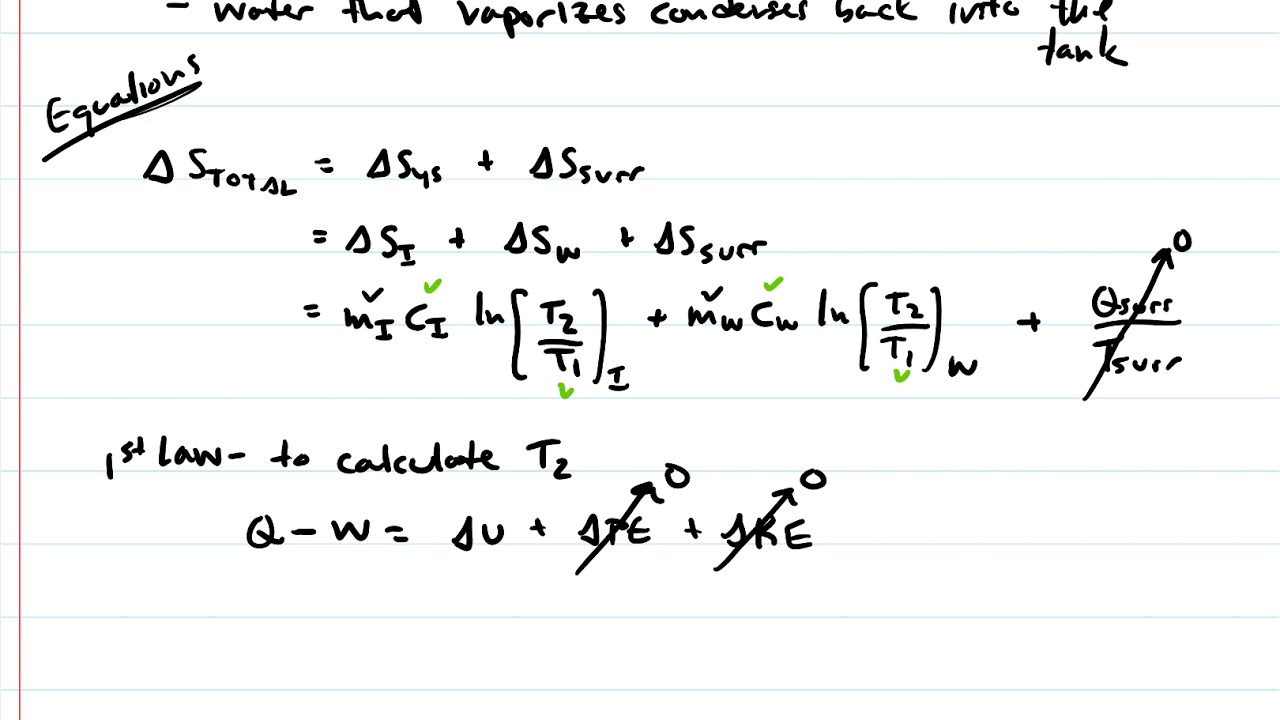 - water that vaporizes condenses back into the
tank
Equations
ΔS_TOTAL = ΔSys + ΔS_surr
= ΔS_I + ΔS_W + ΔS_surr
= m_I C_I ln[T_2/T_1)_I + m_W C_W ln[T_2/T_1)_W + Q_surr/T_surr 0
1st Law - to calculate T_2
Q - W = ΔU + ΔPE 0 + ΔKE 0